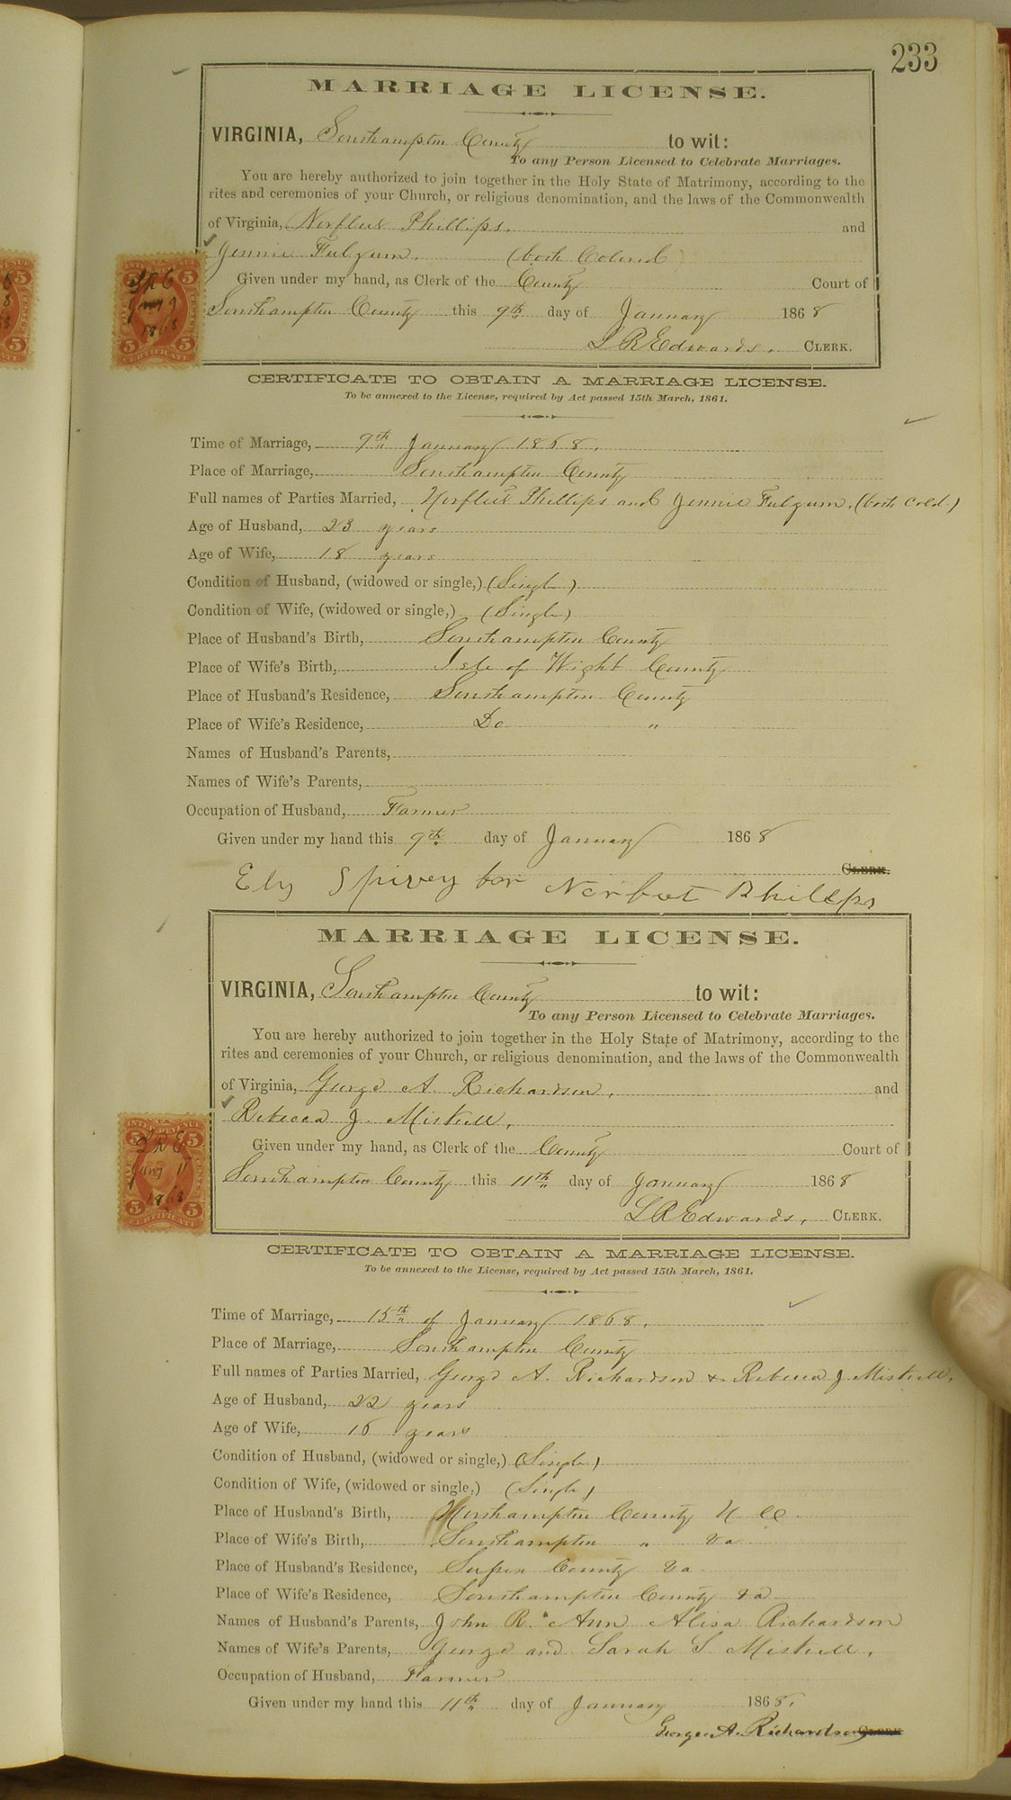 233
MARRIAGE LICENSE.
VIRGINIA, Southampton County to wit:
To any Person Licensed to Celebrate Marriages.
You are hereby authorized to join together in the Holy State of Matrimony, according to the
rites and ceremonies of your Church, or religious denomination, and the laws of the Commonwealth
of Virginia, Norfleet Phillips. and
Jennie Fulgum. (both Colored
Given under my hand, as Clerk of the County Court of
Southampton County this 9th day of January 1868
L R Edwards. CLERK.
CERTIFICATE TO OBTAIN A MARRIAGE LICENSE.
To be annexed to the License, required by Act passed 15th March, 1861.
Time of Marriage, 9th January 1868.
Place of Marriage, Southampton County
Full names of Parties Married, Norfleet Phillips and Jennie Fulgum. (both Cold)
Age of Husband, 23 years
Age of Wife, 18 years
Condition of Husband, (widowed or single,) (Single)
Condition of Wife, (widowed or single,) (Single)
Place of Husband's Birth, Southampton County
Place of Wife's Birth, Isle of Wight County
Place of Husband's Residence, Southampton County
Place of Wife's Residence, Do "
Names of Husband's Parents,
Names of Wife's Parents,
Occupation of Husband, Farmer
Given under my hand this 9th day of January 1868
CLERK.
Ely Spivey for Norfeet Phillps
MARRIAGE LICENSE.
VIRGINIA, Southampton County to wit:
To any Person Licensed to Celebrate Marriages.
You are hereby authorized to join together in the Holy State of Matrimony, according to the
rites and ceremonies of your Church, or religious denomination, and the laws of the Commonwealth
of Virginia, George A. Richardson, and
Rebecca J. Miskell,
Given under my hand, as Clerk of the County Court of
Southampton County this 11th day of January 1868
L R Edwards, CLERK.
INTER. REVENUE
5 5
LRE
Jany 11
1868
5 5
CERTIFICATE
CERTIFICATE TO OBTAIN A MARRIAGE LICENSE.
To be annexed to the License, required by Act passed 15th March, 1861.
Time of Marriage, 15th of January 1868.
Place of Marriage, Southampton County
Full names of Parties Married, George A. Richardson & Rebecca J. Miskell,
Age of Husband, 22 years
Age of Wife, 16 years
Condition of Husband, (widowed or single,) (Single)
Condition of Wife, (widowed or single,) (Single)
Place of Husband's Birth, Northampton County N. C.
Place of Wife's Birth, Southampton " Va
Place of Husband's Residence, Sussex County Va
Place of Wife's Residence, Southampton County Va
Names of Husband's Parents, John R. & Ann Alisa Richardson
Names of Wife's Parents, George and Sarah S. Miskell,
Occupation of Husband, Farmer
Given under my hand this 11th day of January 1868.
George A. Richardson CLERK